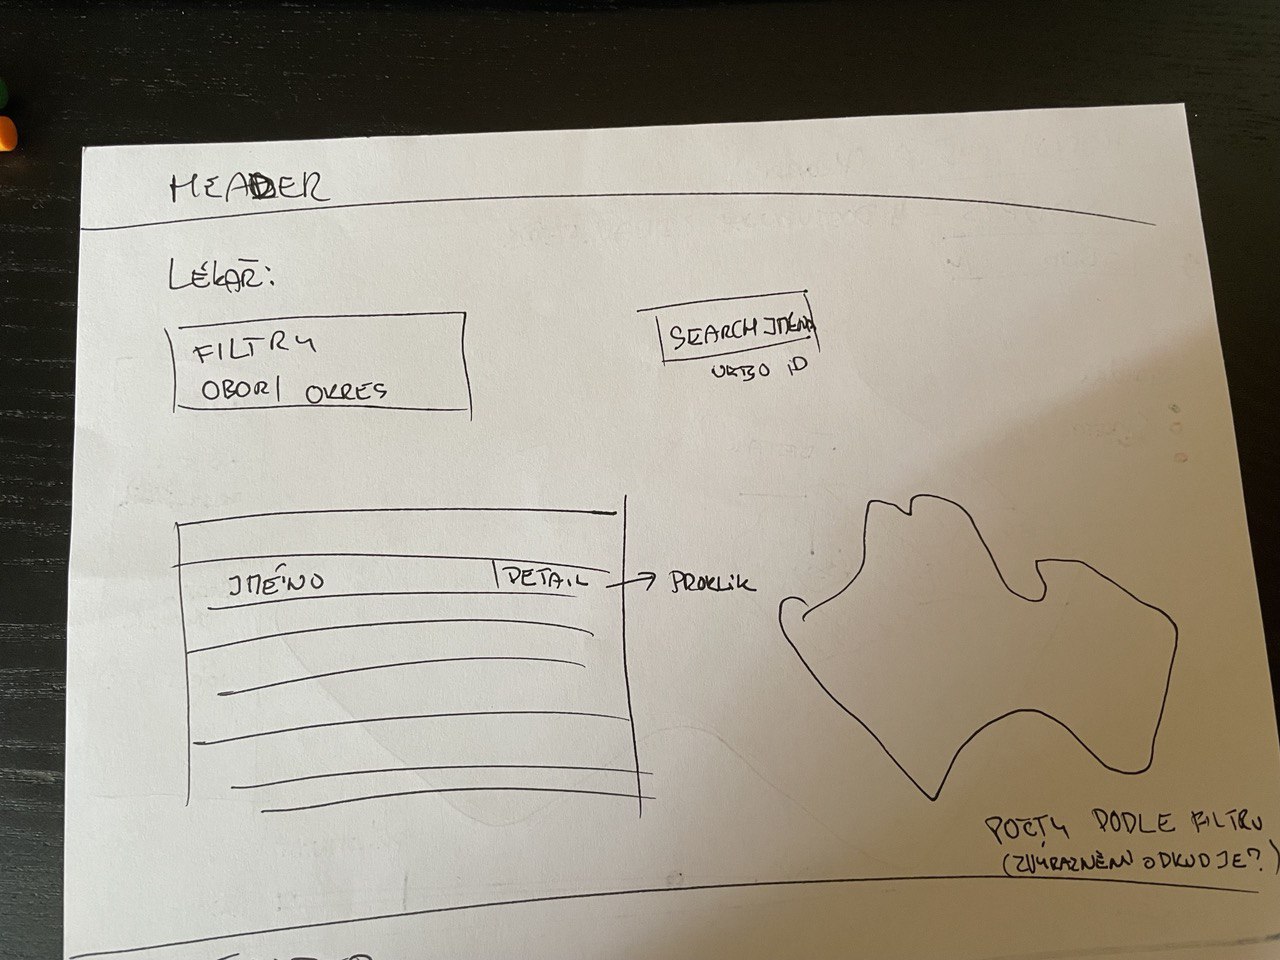 HEADER
LÉKAŘ:
FILTRY
OBOR| OKRES
SEARCH JMÉNO
NEBO ID
JMÉNO |DETAIL → PROKLIK
POČTY PODLE FILTRU
(ZVÝRAZNĚNÍ ODKUD JE?)